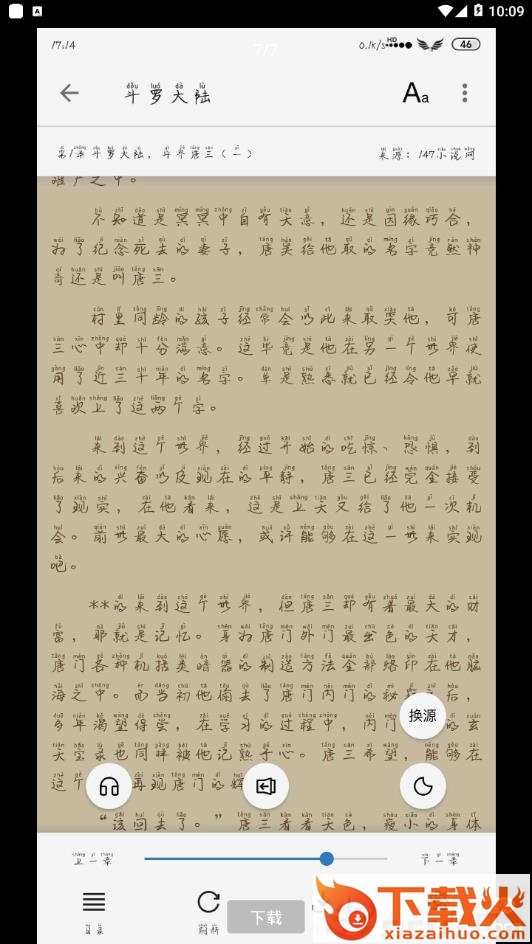 10:09
17:14
7/7
0.1K/s
HD
46
斗罗大陆
Aa
第1章 斗罗大陆，异界唐三（一）
来源：147小说网
难产之中。
不知道是冥冥中自有天意，还是因缘巧合，
为了纪念死去的妻子，唐昊给他取的名字竟然神
奇还是叫唐三。
村里同龄的孩子经常会以此来取笑他，可唐
三心中却十分满意。这毕竟是他在另一个世界使
用了近三十年的名字。单是熟悉就已经令他早就
喜欢上了这两个字。
来到这个世界，经过开始的吃惊、恐惧，到
后来的兴奋以及现在的平静，唐三已经完全接受
了现实，在他看来，这是上天又给了他一次机
会。前世最大的心愿，或许能够在这一世来实现
吧。
**的来到这个世界，但唐三却有着最大的财
富，那就是记忆。身为唐门外门最出色的天才，
唐门各种机括类暗器的制造方法全部烙印在他脑
海之中。而当初他偷去了唐门内门的秘 之后，
多年渴望得尝，在学习的过程中，内门 的玄
天宝录也同样被他记熟于心。唐三希望，能够在
这个 再现唐门的辉
“该回去了。”唐三看着天色，瘦小的身体
换源
上一章
下一章
目录
刷新
下载
下载火
xiazaihuo.com